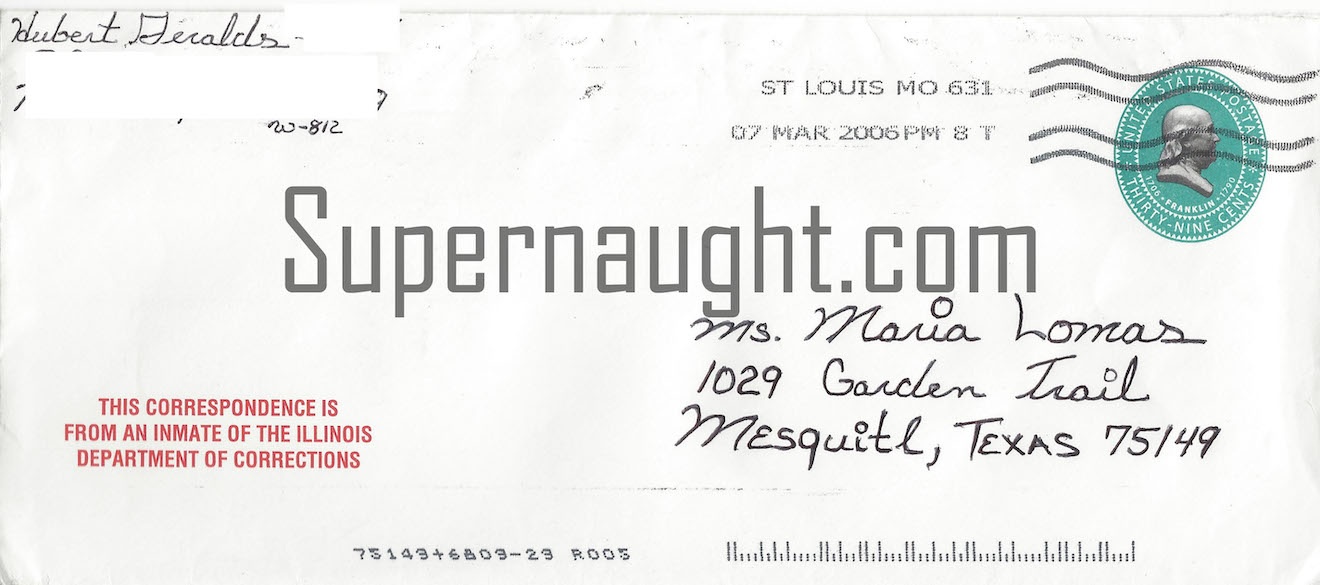 Hubert Geralds-
W-812
ST LOUIS MO 631
07 MAR 2006 PM 8 T
UNITED STATES POSTAGE
1706 · FRANKLIN · 1790
THIRTY-NINE CENTS
Supernaught.com
Ms. Maria Lomas
1029 Garden Trail
Mesquite, Texas 75149
THIS CORRESPONDENCE IS
FROM AN INMATE OF THE ILLINOIS
DEPARTMENT OF CORRECTIONS
75149+6809-29 R005